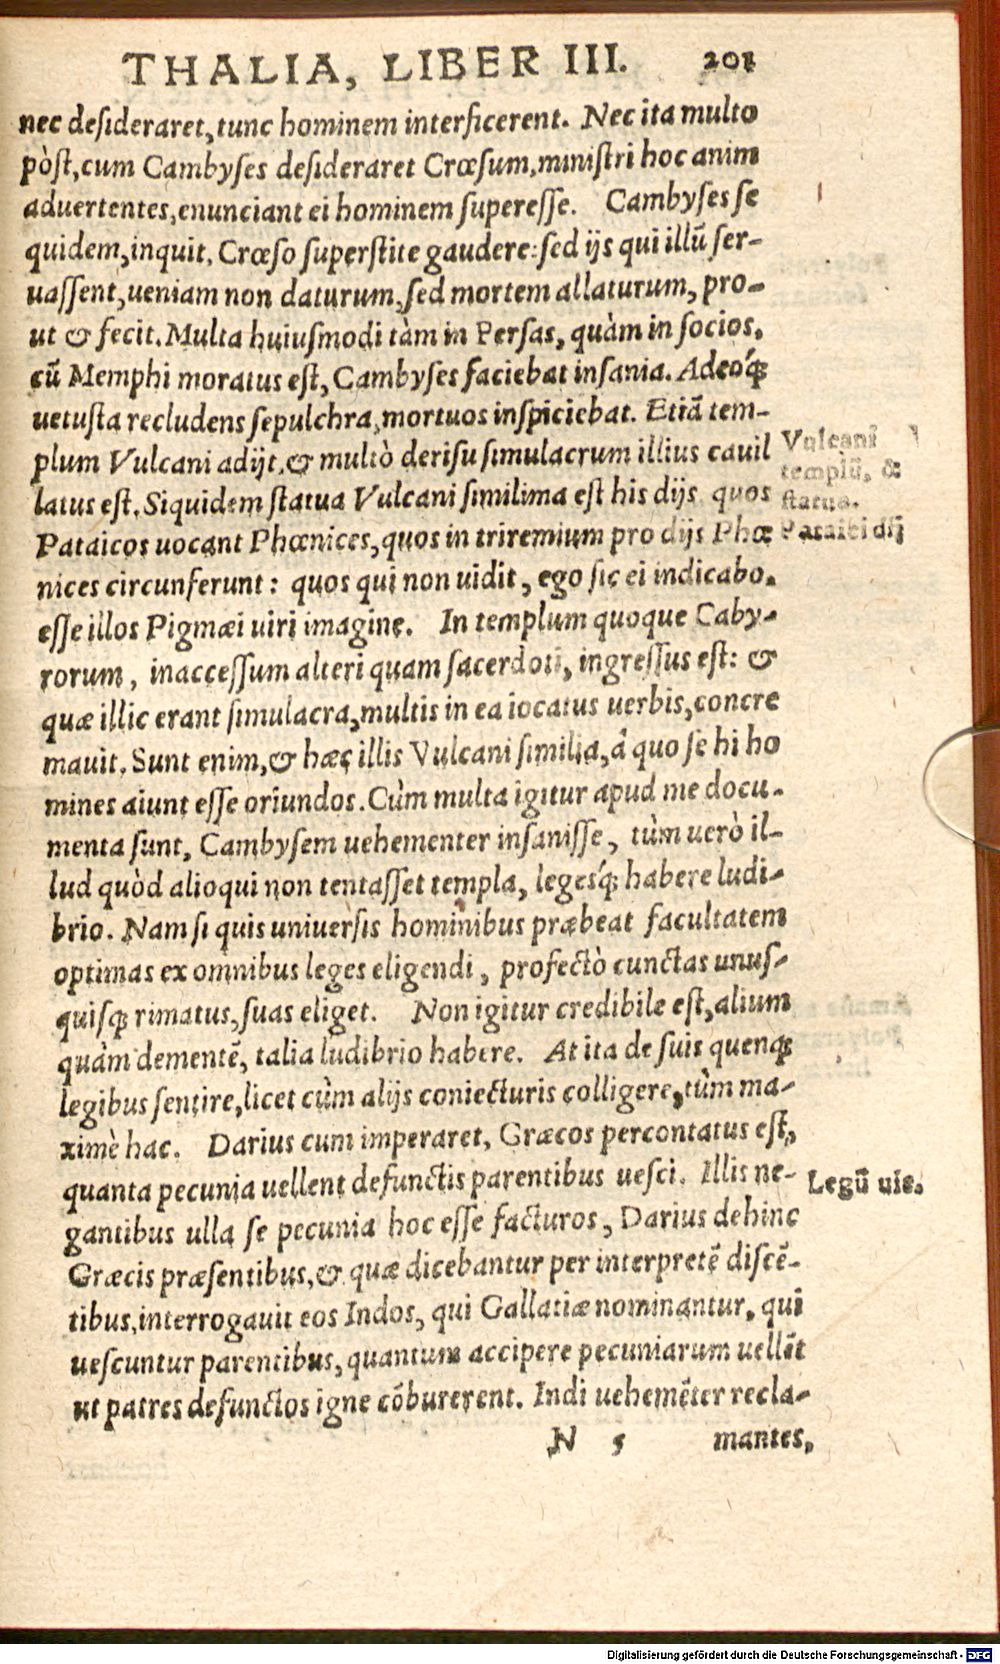 THALIA, LIBER III. 201
nec deſideraret, tunc hominem interficerent. Nec ita multo
pòſt, cum Cambyſes deſideraret Crœſum, miniſtri hoc anim
aduertentes, enunciant ei hominem ſupereſſe. Cambyſes ſe
quidem, inquit, Crœſo ſuperſtite gaudere: ſed ijs qui illũ ſer-
uaſſent, ueniam non daturum, ſed mortem allaturum, pro-
ut & fecit. Multa huiuſmodi tàm in Perſas, quàm in ſocios,
cũ Memphi moratus eſt, Cambyſes faciebat inſania. Adeóq́;
uetuſta recludens ſepulchra, mortuos inſpiciebat. Etiã tem-
plum Vulcani adijt, & multò deriſu ſimulacrum illius cauil
latus eſt. Siquidem ſtatua Vulcani ſimilima eſt his dijs quos
Pataicos uocant Phœnices, quos in triremium pro dijs Phœ
nices circunferunt: quos qui non uidit, ego ſic ei indicabo,
eſſe illos Pigmæi uiri imagine. In templum quoque Caby-
rorum, inacceſſum alteri quam ſacerdoti, ingreſſus eſt: &
quæ illic erant ſimulacra, multis in ea iocatus uerbis, concre
mauit. Sunt enim, & hæc illis Vulcani ſimilia, â quo ſe hi ho
mines aiunt eſſe oriundos. Cùm multa igitur apud me docu-
menta ſunt, Cambyſem uehementer inſaniſſe, tùm uerò il-
lud quòd alioqui non tentaſſet templa, legesq́; habere ludi-
brio. Nam ſi quis uniuerſis hominibus præbeat facultatem
optimas ex omnibus leges eligendi, profectò cunctas unuſ-
quiſq; rimatus, ſuas eliget. Non igitur credibile eſt, alium
quàm dementẽ, talia ludibrio habere. At ita de ſuis quenq;
legibus ſentire, licet cùm alijs coniecturis colligere, tùm ma-
ximè hac. Darius cum imperaret, Græcos percontatus eſt,
quanta pecunia uellent defunctis parentibus ueſci. Illis ne-
gantibus ulla ſe pecunia hoc eſſe facturos, Darius dehinc
Græcis præſentibus, & quæ dicebantur per interpretẽ diſcẽ-
tibus, interrogauit eos Indos, qui Gallatiæ nominantur, qui
ueſcuntur parentibus, quantum accipere pecuniarum uellẽt
ut patres defunctos igne cõburerent. Indi uehemẽter recla-
N 5 mantes,
Vulcani
templũ, &
ſtatua.
Pataici dij
Legũ uis.
Digitalisierung gefördert durch die Deutsche Forschungsgemeinschaft - DFG